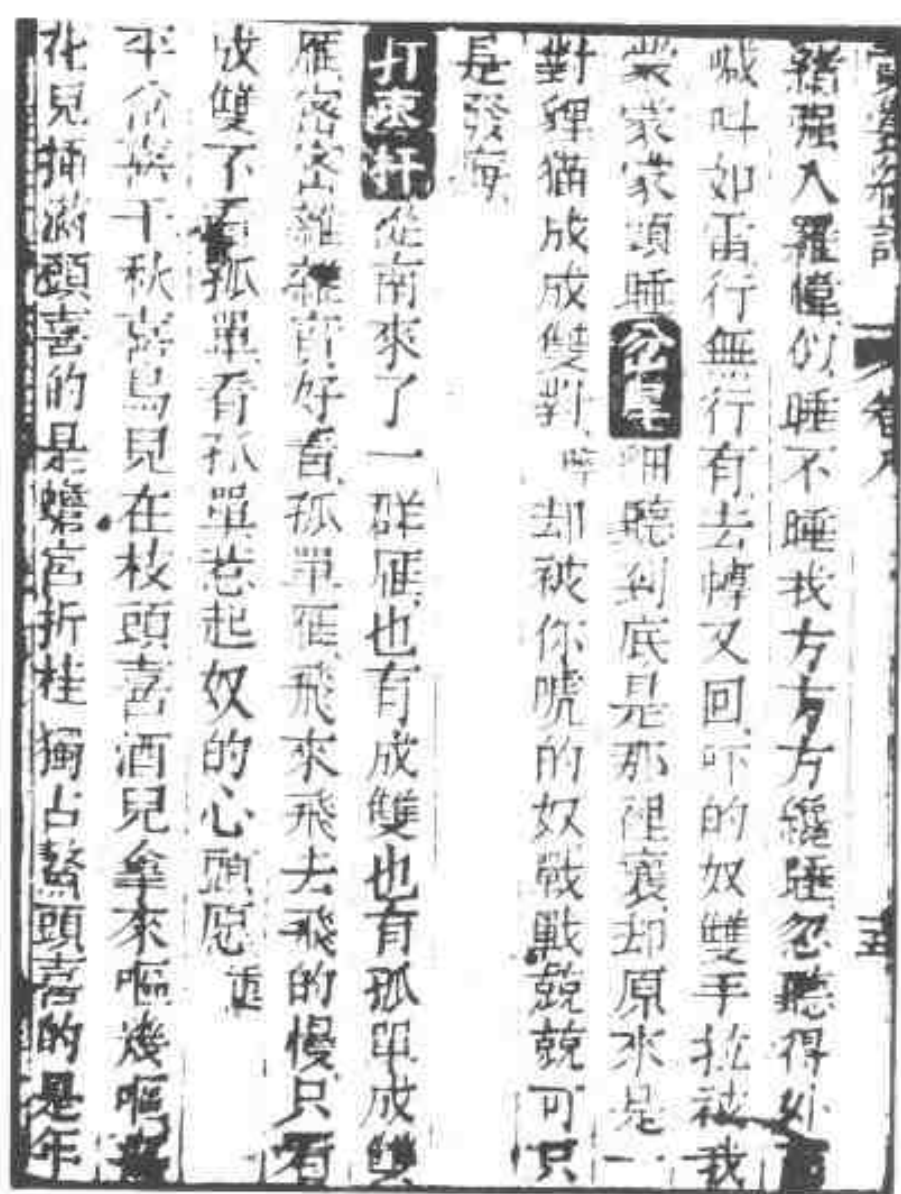 卷八 五
強入羅幃似睡不睡我方方方纔睡忽聽得外
喊叫如雷行無行有去悼又回吓的奴雙手拉被我
蒙蒙蒙頭睡 聽到底是那裡裹却原來是一
對狸猫成成雙對 却被你唬的奴戰戰兢兢可只
是發
打棗杆 從南來了一群雁也有成雙也有孤單成雙
雁密密雜雜 好看孤單雁飛來飛去飛的慢只看
成雙了 孤單看孤單惹起奴的心頭
千秋喜鳥兒在枝頭喜酒兒拿來嘔 嘔
花兒插滿頭喜的是蟾宮折桂獨占鰲頭喜的是年